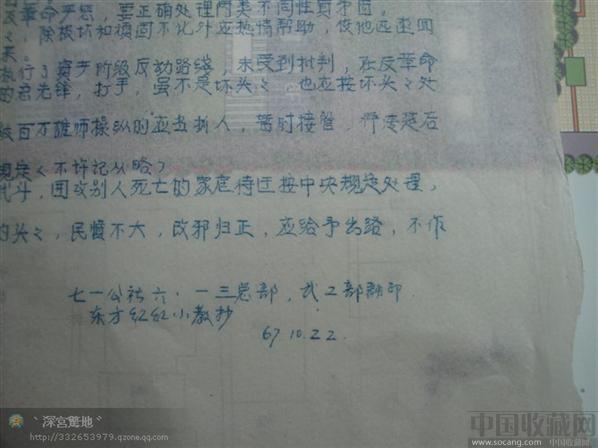 反革命严惩，要正确处理两类不同性质矛盾。
除极坏和顽固不化外应热情帮助，使他迅速回
来。
执行了资产阶级反动路线，未受到批判，在反革命
的君先锋，打手，虽不是坏头头 也应按坏头头处
被百万雄师操纵的应当派人，暂时接管，
规定<不许记从略>
武斗，围攻别人死亡的家庭待迂按中央规定处理，
的头头，民愤不大，改邪归正，应给予出路，不作
七一公社六·一三总部，武工部翻印
东方红红小教抄
67.10.22.
丶深宫蹩地丶
http://332653979.qzone.qq.com
中国收藏网
www.socang.com